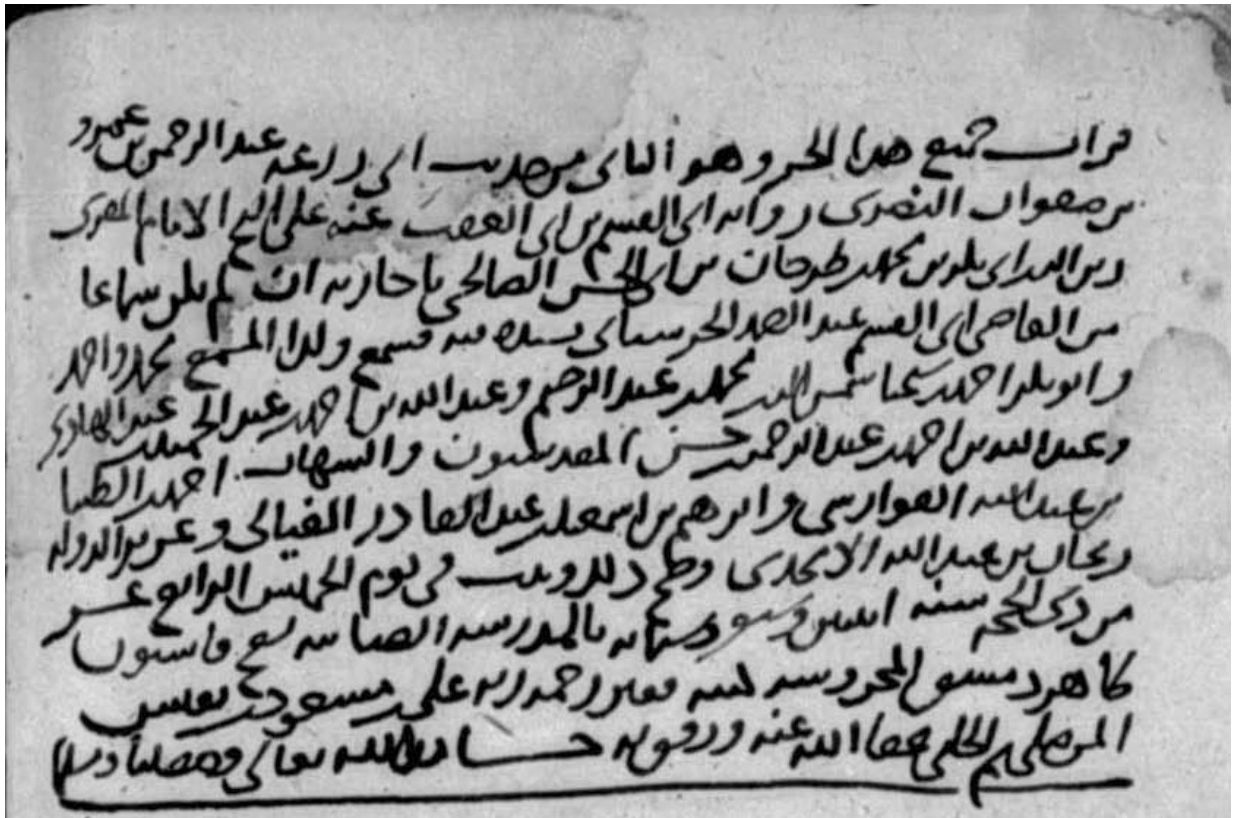 قرات جميع هذا الجزو وهو الثاني من حديث ابي زرعه عبد الرحمن بن عمرو
بن صفوان النصري روايه ابي القسم بن ابي العقب عنه على الشيخ الامام المقري
زين الدين ابي بكر بن محمد بن طرخان بن ابي الحسن الصالحي باجازته ان لم يكن سماعا
من القاضي ابي القسم عبد الصمد الحرستاني بسنده فيه فسمع ولدا المسمع محمد واحمد
وابو بكر احمد شيخنا شمس الدين محمد بن عبد الرحيم وعبد الله بن احمد بن عبد الحميد بن عبد الهادي
وعبد الله بن احمد بن عبد الرحمن بن حسن المقدسيون والشهاب احمد
بن عبد الله الفوارسي وابرهيم بن اسمعيل بن عبد القادر وعز الدوله
ريحان بن عبد الله وصح ذلك وثبت في يوم الخميس الرابع عشر
من ذي الحجه سنه اثنين وستمايه بالمدرسه الضيائيه بسفح قاسيون
ظاهر دمشق المحروسه كتبه فقير رحمه ربه علي بن مسعود بن نفيس
الموصلي ثم الحلبي عفا الله عنه ورفق به حامدا لله تعالى ومصليا ومسلما